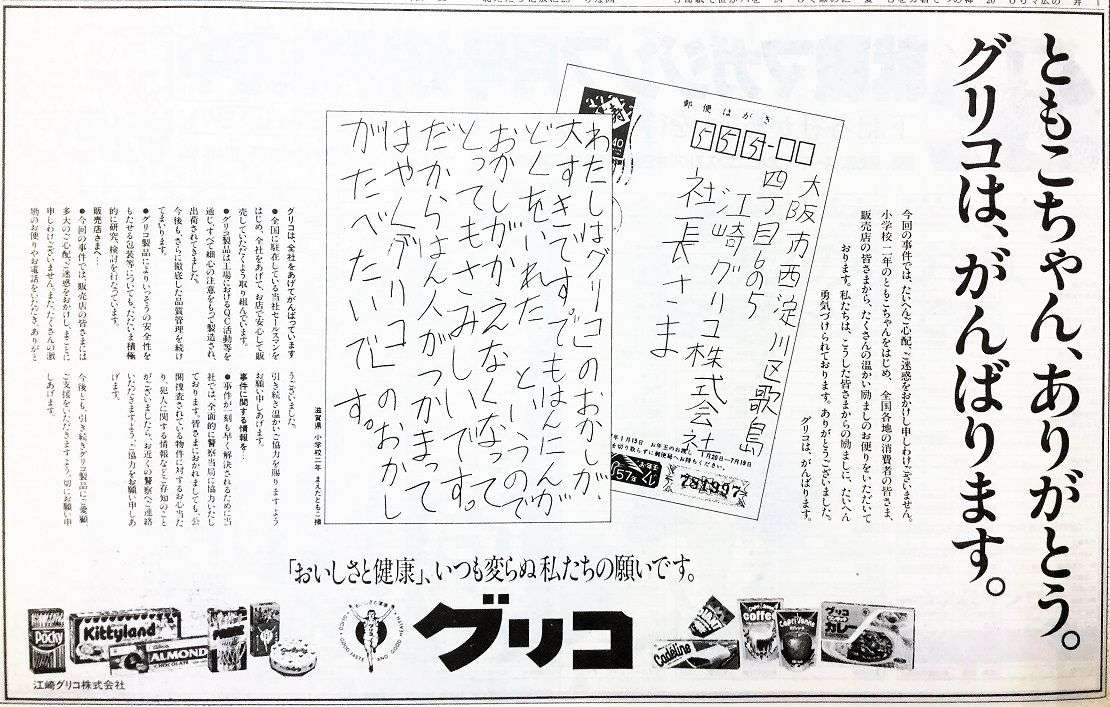 ともこちゃん、ありがとう。
グリコは、がんばります。
今回の事件では、たいへんご心配、ご迷惑をおかけし申しわけございません。
小学校二年のともこちゃんをはじめ、全国各地の消費者の皆さま、
販売店の皆さまから、たくさんの温かい励ましのお便りをいただいて
おります。私たちは、こうした皆さまからの励ましに、たいへん
勇気づけられております。ありがとうございました。
グリコは、がんばります。
郵便はがき
555
大阪市西淀川区歌島
四丁目6の5
江崎グリコ株式会社
社長さま
40
1月15日 お年玉のお渡し 1月20日—7月19日
を切り取らずに郵便局へお持ちください。
お年玉
57
781997
わたしはグリコのおかしが、
大すきです。でもはんにんが
どくをいれたというので
おかしがかえなくなって
とってもさみしいです。
だからはん人がつかまって
はやくグリコのおかし
がたべたいです。
滋賀県 小学校二年 まえだともこ
グリコは、全社をあげてがんばっています
●全国に駐在している当社セールスマンを
はじめ、全社をあげて、お店で安心して販
売していただくよう取り組んでいます。
●グリコ製品は工場におけるQC活動等を
通じ、すべて細心の注意をもって製造され、
出荷されてきました。
今後も、さらに徹底した品質管理を続け
てまいります。
●グリコ製品によりいっそうの安全性を
もたせる包装等についても、ただいま積極
的に研究、検討を行なっています。
販売店さまへ…
●今回の事件では、販売店の皆さまには
多大のご心配、ご迷惑をおかけし、まことに
申しわけございません。また、たくさんの激
励のお便りやお電話をいただき、ありがと
うございました。
引き続き温かいご協力を賜りますよう
お願い申しあげます。
事件に関する情報を…
●事件が一刻も早く解決されるために当
社では、全面的に警察当局に協力いたし
ております。皆さまにおかれましても、公
開捜査されている物件に対するお心当た
り、犯人に関する情報などご存知のこと
がございましたら、お近くの警察へご連絡
いただきますよう、ご協力をお願い申しあ
げます。
今後とも、引き続きグリコ製品にご愛顧、
ご支援をいただきますよう、切にお願い申
しあげます。
「おいしさと健康」、いつも変らぬ私たちの願いです。
Pocky
Kittyland
ALMOND
CHOCOLATE
GLICO
GOOD TASTE AND GOOD HEALTH
グリコ
coffee
グリコ
カレー
江崎グリコ株式会社